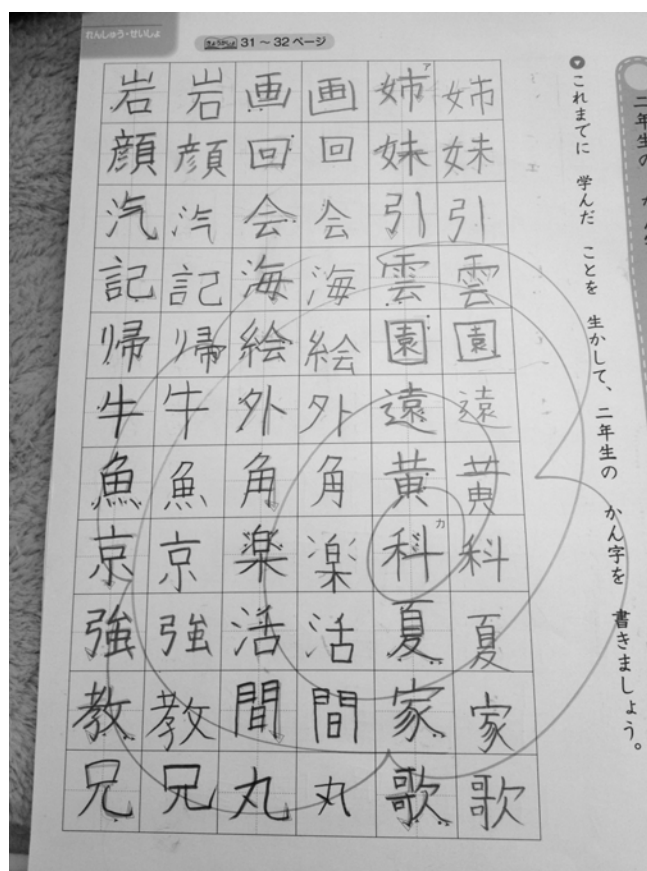 れんしゅう・せいしょ
きょうかしょ 31～32ページ
二年生の
これまでに 学んだ ことを 生かして、二年生の かん字を 書きましょう。
姉妹引雲園遠黄科夏家歌
ア姉妹引雲園遠黄カ科夏家歌
画回会海絵外角楽活間丸
画回会海絵外角楽活間丸
岩顔汽記帰牛魚京強教兄
岩顔汽記帰牛魚京強教兄